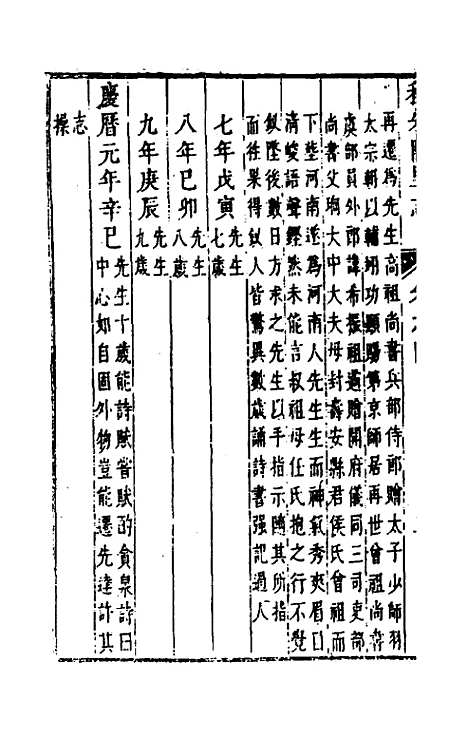 再遷爲先生高祖尚書兵部侍郎贈太子少師羽
太宗朝以輔翊功顯賜第京師居再世曾祖尚書
虞部員外郎諱希振祖遹贈開府儀同三司吏部
尚書父珦大中大夫母封壽安縣君侯氏曾祖而
下塟河南遂爲河南人先生生而神氣秀爽眉目
清峻語聲鏗然未能言叔祖母任氏抱之行不覺
釵墜後數日方求之先生以手指示隨其所指
而徃果得釵人皆驚異數歲誦詩書强記過人
七年戊寅先生七歲
八年己卯先生八歲
九年庚辰先生九歲
慶曆元年辛巳先生十歲能詩賦嘗賦酌貪泉詩曰
中心如自固外物豈能遷先達許其
志
操